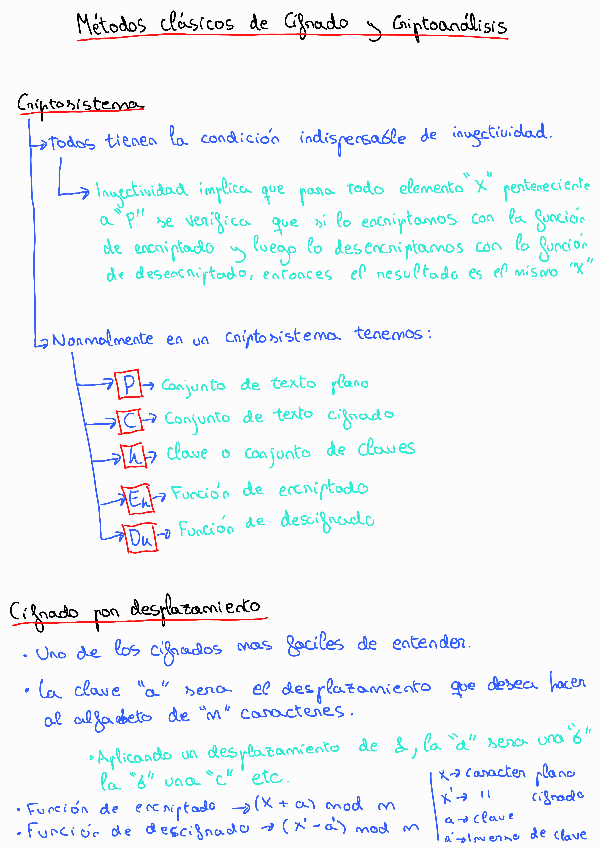 Métodos clásicos de Cifrado y Criptoanálisis
Criptosistema
→ Todos tienen la condición indispensable de inyectividad.
→ Inyectividad implica que para todo elemento "X" perteneciente
a "P" se verifica que si lo encriptamos con la función
de encriptado y luego lo desencriptamos con la función
de desencriptado, entonces el resultado es el mismo "X"
→ Normalmente en un criptosistema tenemos:
→ P → Conjunto de texto plano
→ C → Conjunto de texto cifrado
→ k → Clave o conjunto de claves
→ Ek → Función de encriptado
→ Dk → Función de descifrado
Cifrado por desplazamiento
· Uno de los cifrados mas faciles de entender.
· La clave "a" sera el desplazamiento que desea hacer
al alfabeto de "m" caracteres.
· Aplicando un desplazamiento de 1, la "a" sera una "b"
la "b" una "c" etc.
· Función de encriptado → (x + a) mod m
· Función de descifrado → (x' - a') mod m
x → caracter plano
x' → " cifrado
a → clave
a' → inverso de clave